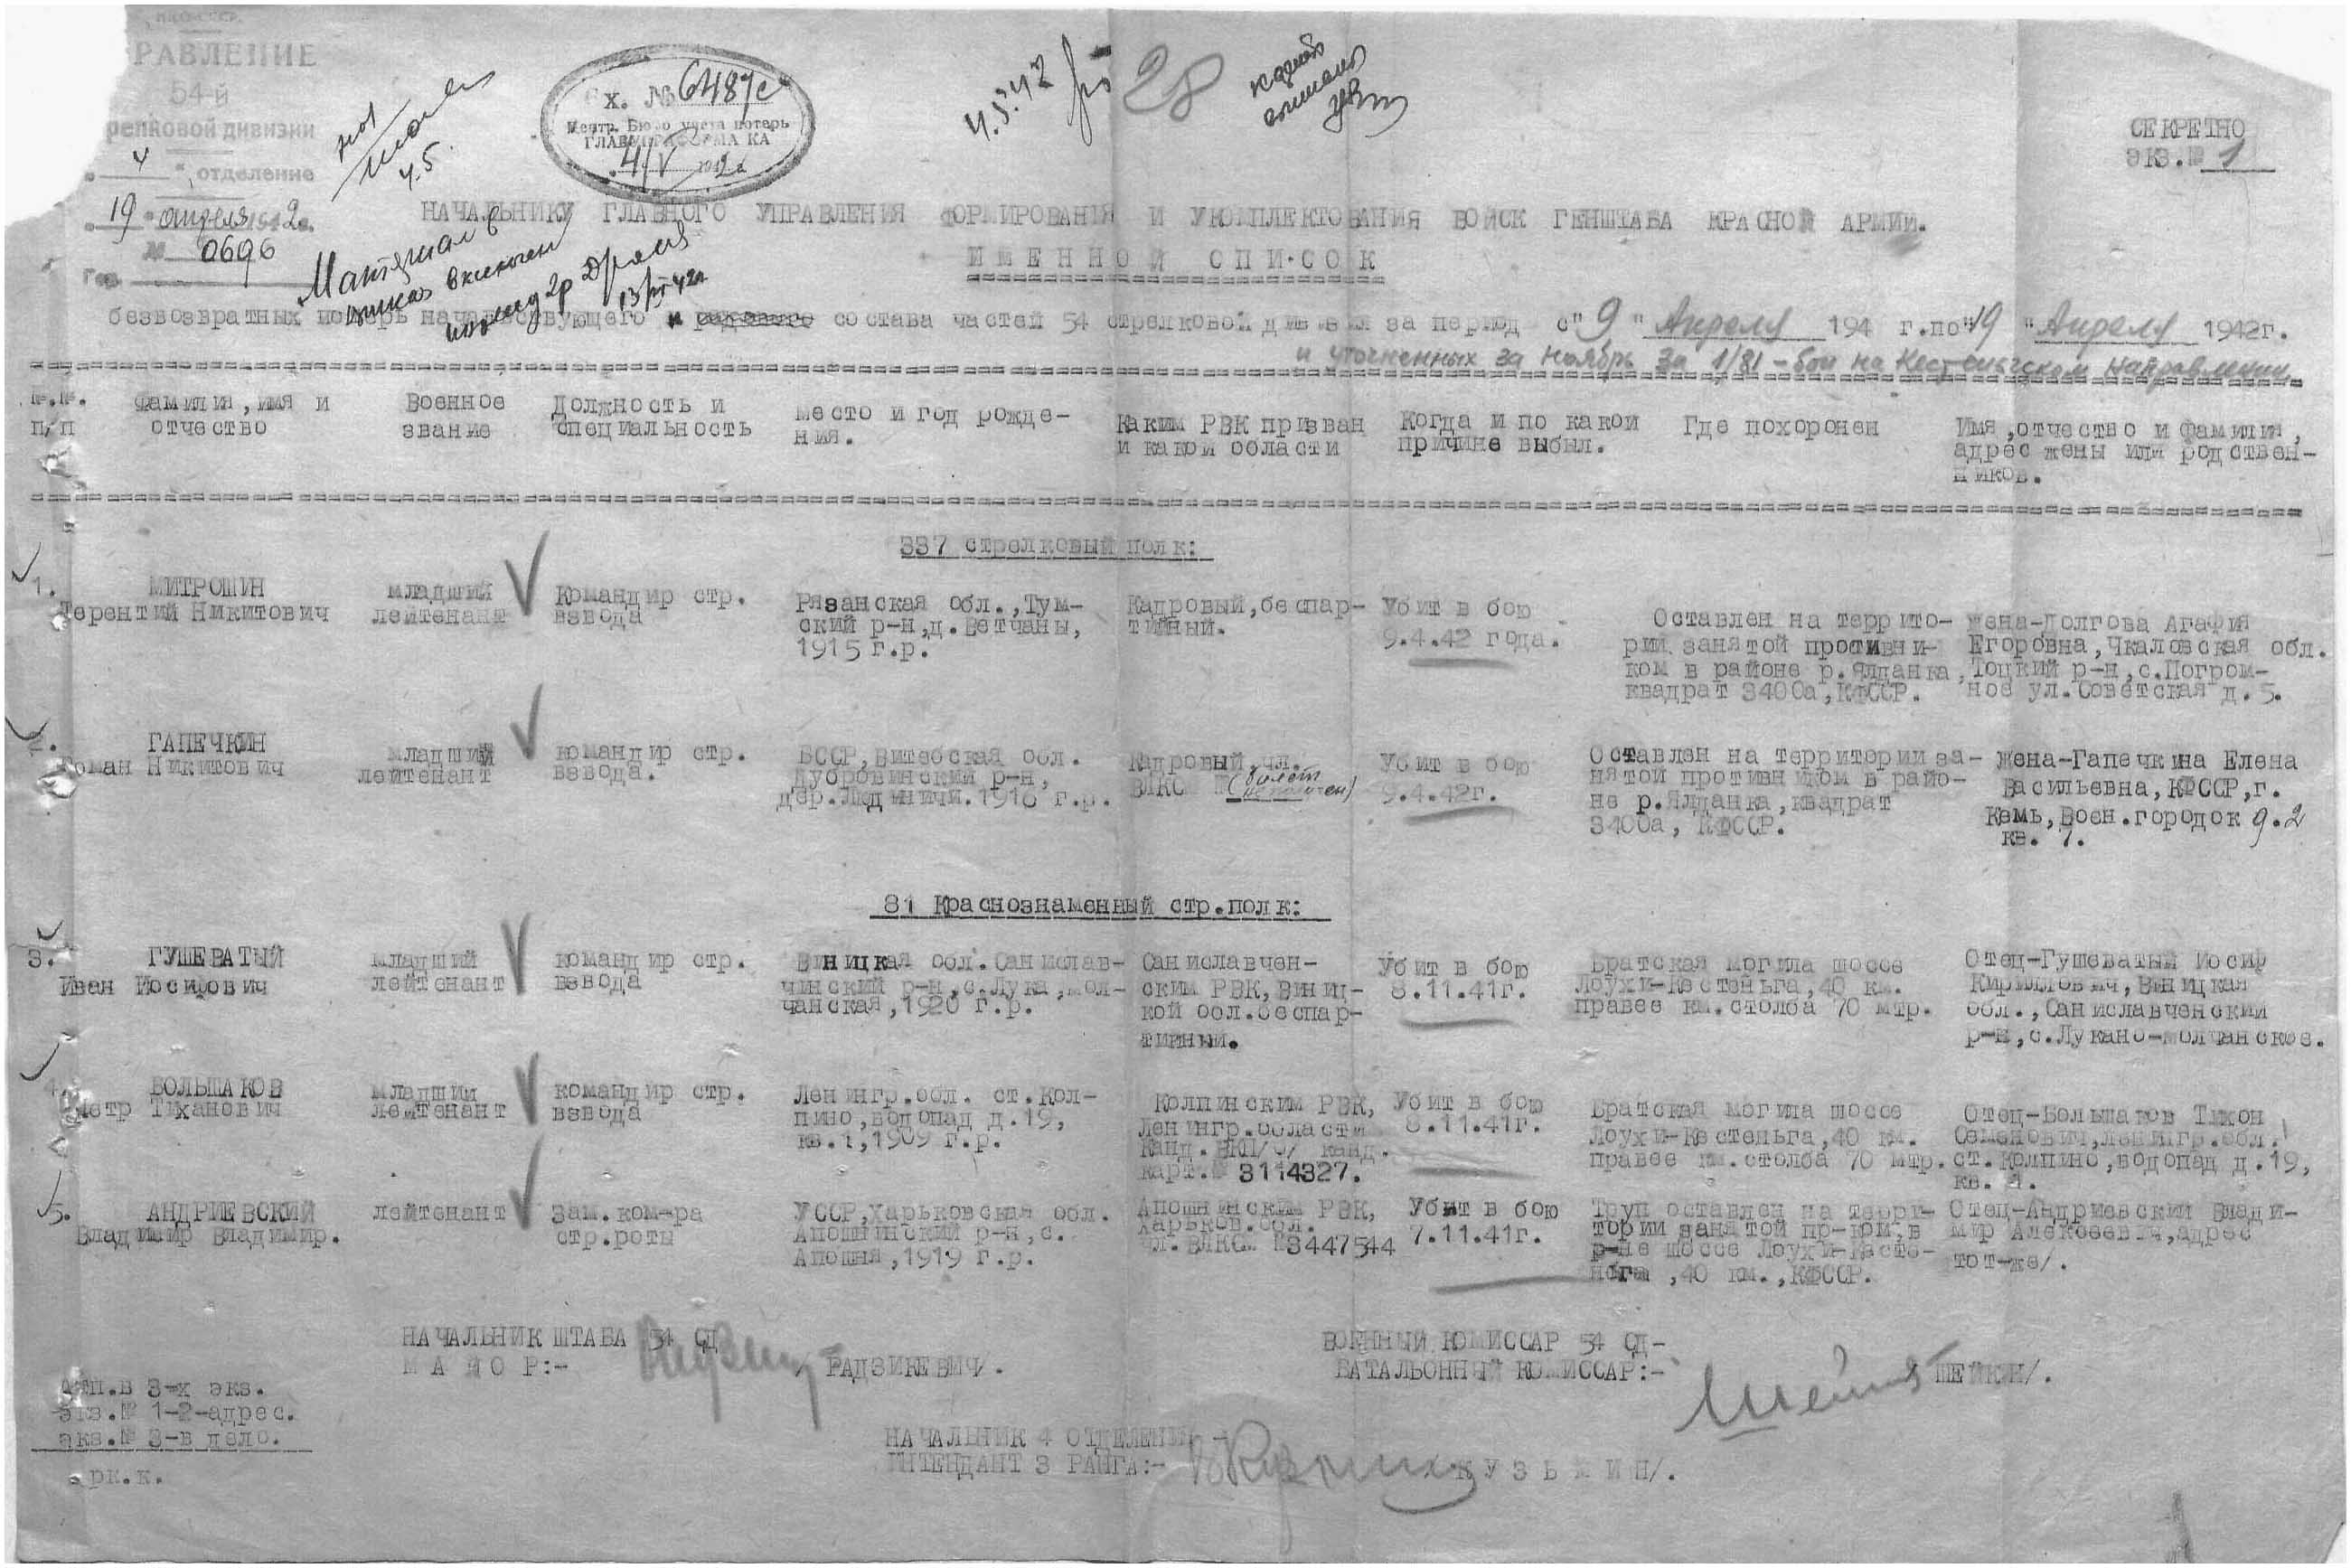 РАВЛЕНИЕ
54-й
релковой дивизии
" 4 " отделение
"19" апреля 1942г.
№ 0696
Гор.
4.5.
х. № 6487с
Центр. Бюро учета потерь
ГЛАВУПРАФОРМА КА
4/V 1942г
4.5.42
28
СЕКРЕТНО
ЭКЗ.№ 1
НАЧАЛЬНИКУ ГЛАВНОГО УПРАВЛЕНИЯ ФОРМИРОВАНИЯ И УКОМПЛЕКТОВАНИЯ ВОЙСК ГЕНШТАБА КРАСНОЙ АРМИИ.
ИМЕННОЙ СПИСОК
Материал в
приказ включен
13/VI 42г
безвозвратных потерь начальствующего и рядового состава частей 54 стрелковой дивизии за период с "9" Апреля 194 г. по "19" Апреля 1942г.
и уточненных за ноябрь за 1/81 - бои на Кестеньгском направлении
№.№. п/п
Фамилия, имя и отчество
Военное звание
Должность и специальность
Место и год рождения.
Каким РВК призван и какой области
Когда и по какой причине выбыл.
Где похоронен
Имя, отчество и фамилия, адрес жены или родственников.
337 стрелковый полк:
1.
МИТРОШИН
Терентий Никитович
младший
лейтенант
Командир стр.
взвода
Рязанская обл., Тум-
ский р-н, д. Ветчаны,
1915 г.р.
Кадровый, беспар-
тийный.
Убит в бою
9.4.42 года.
Оставлен на террито-
рии занятой противни-
ком в районе р. Ялданка,
квадрат 3400а, КФССР.
жена-Долгова Агафия
Егоровна, Чкаловская обл.
Тоцкий р-н, с. Погром-
ное ул. Советская д. 5.
2.
ГАПЕЧКИН
Роман Никитович
младший
лейтенант
командир стр.
взвода.
БССР, Витебская обл.
Дубровинский р-н,
дер. Людиничи. 1916 г.р.
Кадровый, чл.
ВЛКСМ (билет
не получен)
Убит в бою
9.4.42г.
Оставлен на территории за-
нятой противником в райо-
не р. Ялданка, квадрат
3400а, КФССР.
жена-Гапечкина Елена
Васильевна, КФССР, г.
Кемь, Воен. городок 9.2
кв. 7.
81 Краснознаменный стр. полк:
3.
ГУШЕВАТЫЙ
Иван Иосифович
младший
лейтенант
командир стр.
взвода
Виницкая обл. Санислав-
чинский р-н, с. Лука, мол-
чанская, 1920 г.р.
Саниславчен-
ским РВК, Виниц-
кой обл. беспар-
тийный.
Убит в бою
8.11.41г.
Братская могила шоссе
Лоухи-Кестеньга, 40 км.
правее км. столба 70 мтр.
Отец-Гушеватый Иосиф
Кириллович, Виницкая
обл., Саниславченский
р-н, с. Лукано-молчанское.
4.
БОЛЬШАКОВ
Петр Тиханович
младший
лейтенант
командир стр.
взвода
Ленингр. обл. ст. Кол-
пино, водопад д. 19,
кв. 1, 1909 г.р.
Колпинским РВК,
Ленингр. области
Канд. ВКП/б/ канд.
карт. № 3114327.
Убит в бою
8.11.41г.
Братская могила шоссе
Лоухи-Кестеньга, 40 км.
правее км. столба 70 мтр.
Отец-Большаков Тихон
Семенович, Ленингр. обл.
ст. Колпино, водопад д. 19,
кв. 1.
5.
АНДРИЕВСКИЙ
Владимир Владимир.
лейтенант
Зам. ком-ра
стр. роты
УССР, Харьковская обл.
Апошнинский р-н, с.
Апошня, 1919 г.р.
Апошнинским РВК,
Харьков. обл.
чл. ВЛКСМ №3447544
Убит в бою
7.11.41г.
Труп оставлен на терри-
тории занятой пр-ком, в
р-не шоссе Лоухи-Касте-
ньга, 40 км., КФССР.
Отец-Андриевский Влади-
мир Алексеевич, адрес
тот-же/.
НАЧАЛЬНИК ШТАБА 54 СД
МАЙОР:- РАДЗИКЕВИЧ/.
ВОЕННЫЙ КОМИССАР 54 СД-
БАТАЛЬОННЫЙ КОМИССАР:- ШЕЙКИН/.
Отп. в 3-х экз.
экз.№ 1-2-адрес.
экз.№ 3-в дело.
рк.к.
НАЧАЛЬНИК 4 ОТДЕЛЕНИЯ -
ИНТЕНДАНТ 3 РАНГА:- КУЗЬМИН/.